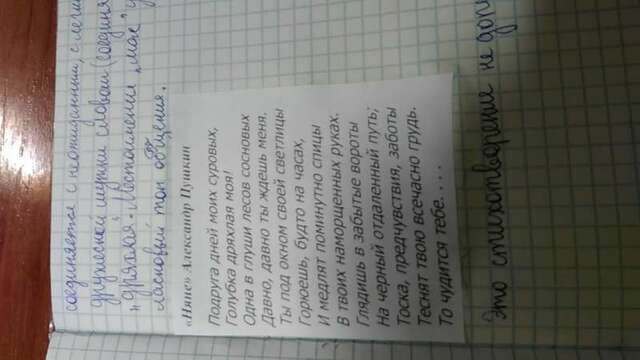 соединяется с неожиданным, с легкой
дружеской шутки словом (соединя
"дряхлая". Местоимение "моя"
ласковый тон общения.
«Няне» Александр Пушкин
Подруга дней моих суровых,
Голубка дряхлая моя!
Одна в глуши лесов сосновых
Давно, давно ты ждешь меня.
Ты под окном своей светлицы
Горюешь, будто на часах,
И медлят поминутно спицы
В твоих наморщенных руках.
Глядишь в забытые вороты
На черный отдаленный путь;
Тоска, предчувствия, заботы
Теснят твою всечасно грудь.
То чудится тебе. . . .
Это стихотворение не